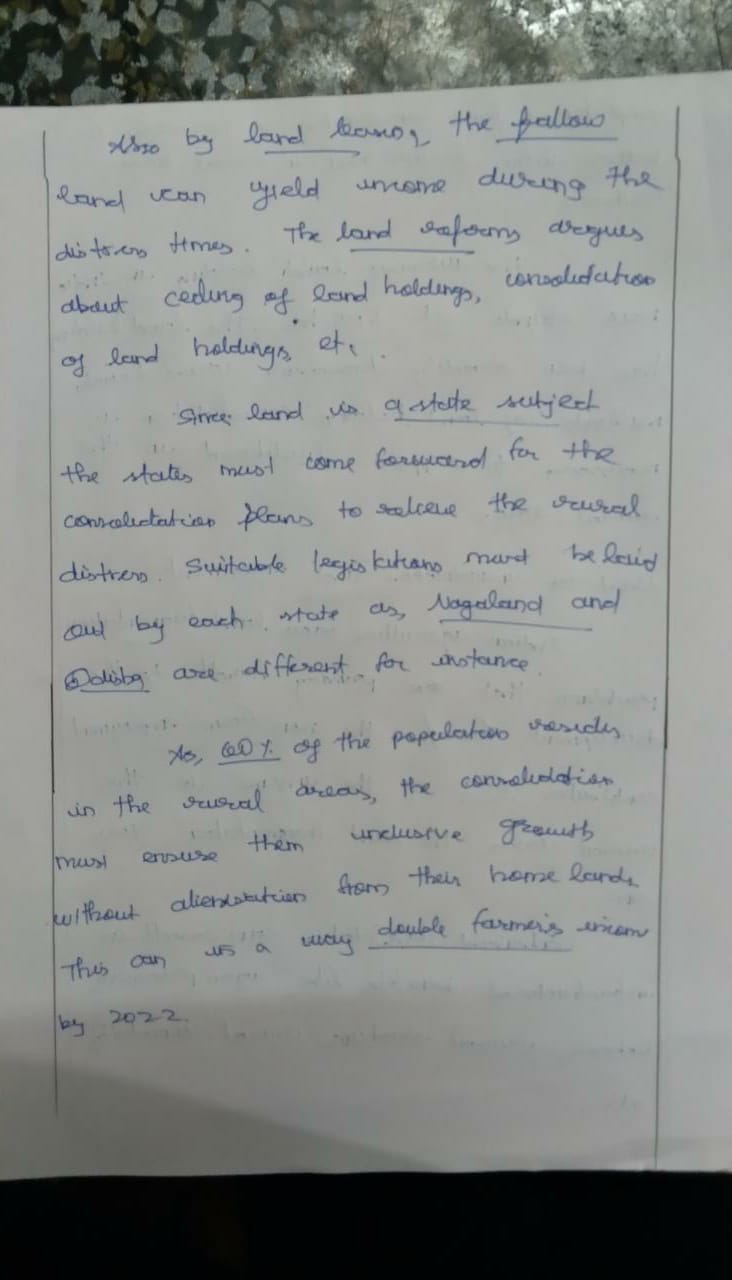 Also by land leasing, the fallow
land can yield income during the
distress times. The land reforms argues
about ceiling of land holdings, consolidation
of land holdings, etc.
Since land is a state subject
the states must come forward for the
consolidation plans to relieve the rural
distress. Suitable legislations must be laid
out by each state as, Nagaland and
Odisha are different for instance.
As, 60% of the population resides
in the rural areas, the consolidation
must ensure them inclusive growth
without alienation from their home lands.
This can us a way double farmer's income
by 2022.